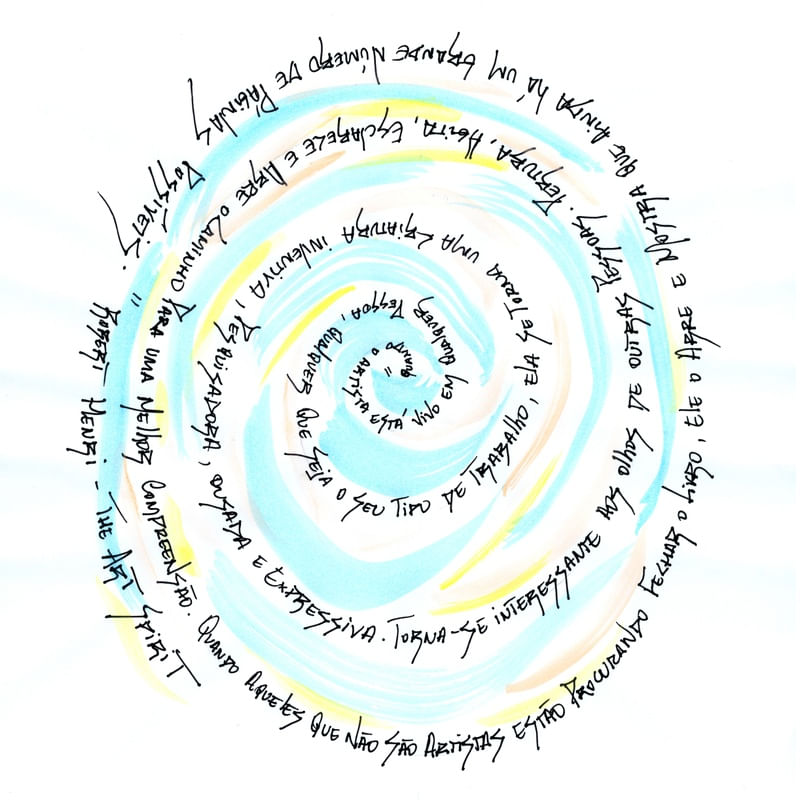 "Quando o artista está vivo em qualquer pessoa, qualquer que seja o seu tipo de trabalho, ela se torna uma criatura inventiva, pesquisadora, ousada e expressiva. Torna-se interessante aos seus outras pessoas. Perturba, agita, esclarece e abre o caminho para uma melhor compreensão. Quando aqueles que não são artistas estão procurando fechar o livro, ele o abre e mostra que ainda há um grande número de páginas possíveis."
Robert Henri - The Art Spirit